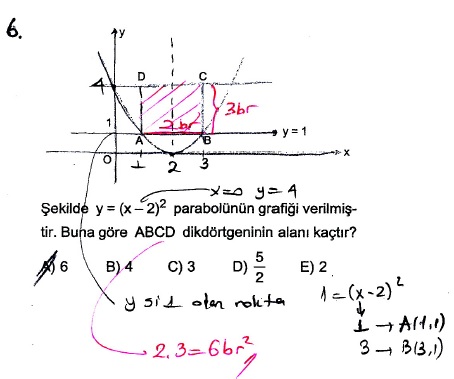 6.
y
4
D
C
3br
2br
1
A
B
y = 1
O
1
2
3
x
x=0 y=4
Şekilde y = (x – 2)² parabolünün grafiği verilmiş-
tir. Buna göre ABCD dikdörtgeninin alanı kaçtır?
A) 6 B) 4 C) 3 D) 5/2 E) 2
y si 1 olan nokta
1=(x-2)²
1 → A(1,1)
3 → B(3,1)
2.3=6br²